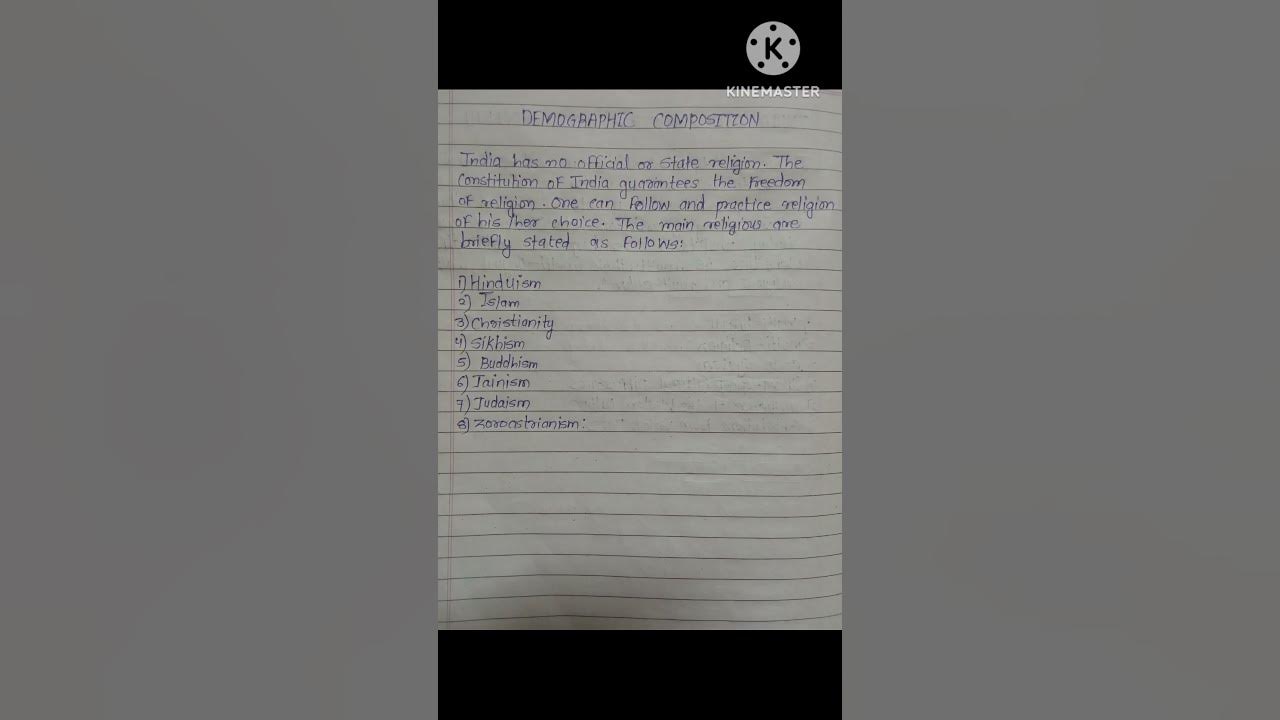 K
KINEMASTER
DEMOGRAPHIC COMPOSITION
India has no official or state religion. The
Constitution of India guarantees the Freedom
of religion. One can follow and practice religion
of his/her choice. The main religious are
briefly stated as follows:
1) Hinduism
2) Islam
3) Christianity
4) Sikhism
5) Buddhism
6) Jainism
7) Judaism
8) Zoroastrianism: